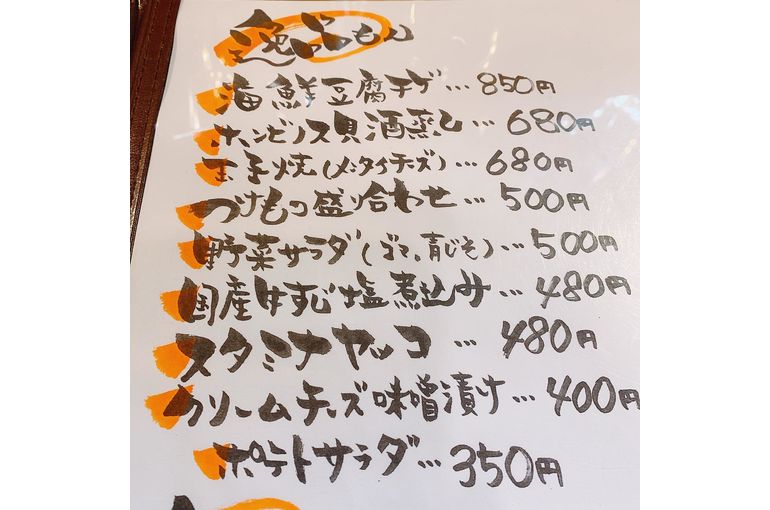 逸品もん
海鮮豆腐チゲ…850円
ホンビノス貝酒蒸し…680円
玉子焼(メンタイチーズ)…680円
つけもの盛り合わせ…500円
野菜サラダ(ゴマ、青じそ)…500円
国産牛すじ塩煮込み…480円
スタミナヤッコ…480円
クリームチーズ味噌漬け…400円
ポテトサラダ…350円